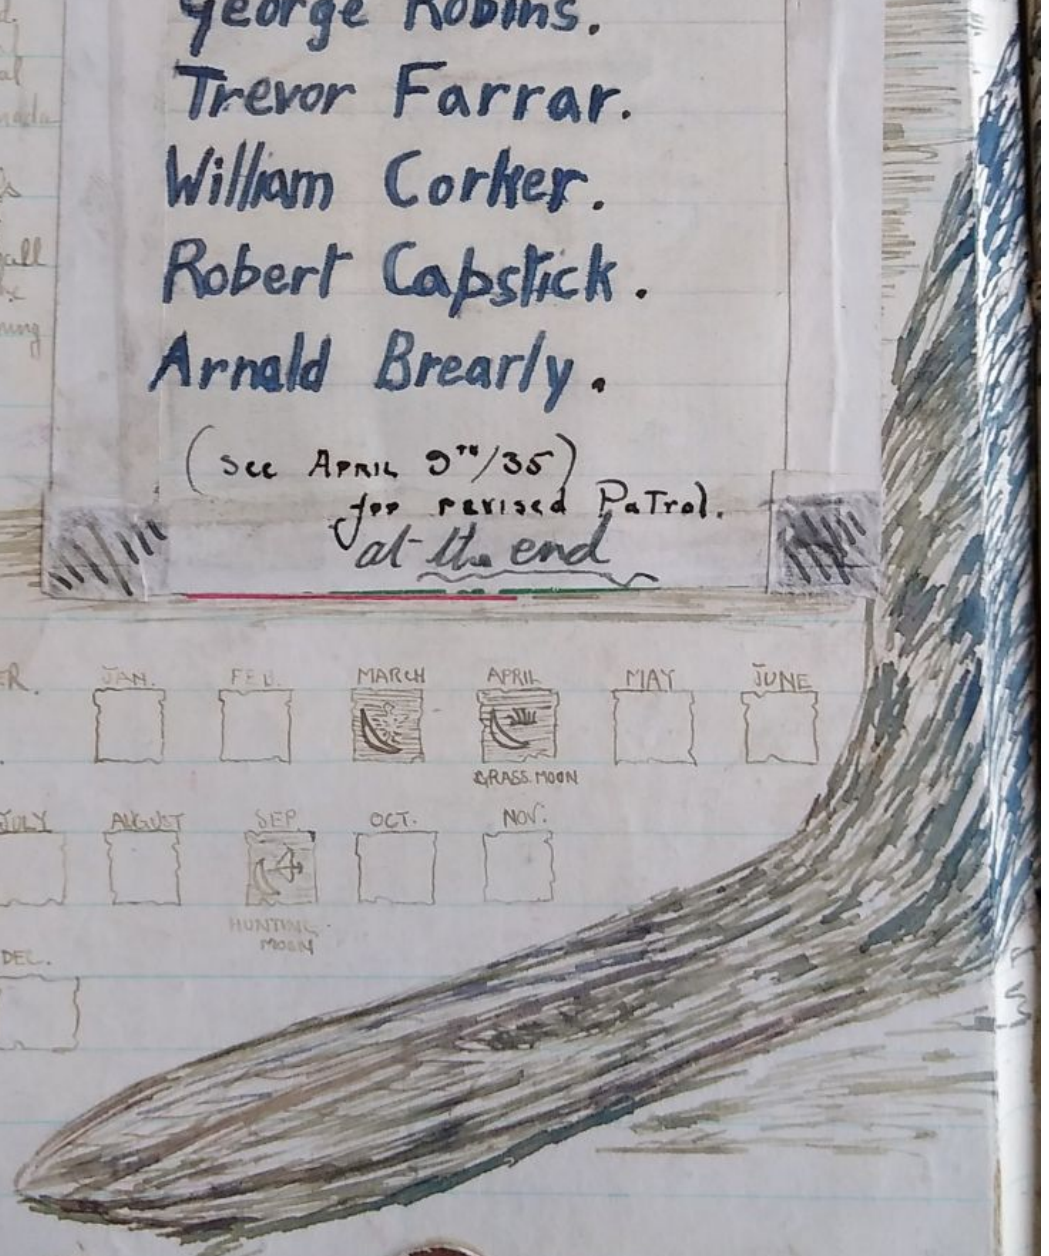 George Robins.
Trevor Farrar.
William Corker.
Robert Capstick.
Arnald Brearly.
(See APRIL 9TH/35)
for revised PaTrol.
at the end
ER. JAN. FEB. MARCH APRIL MAY JUNE
GRASS. MOON
JULY AUGUST SEP. OCT. NOV.
HUNTING MOON
DEC.